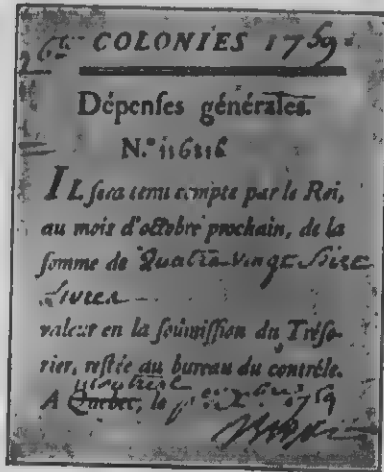 COLONIES 1759
Dépenſes générales.
N.º
IL ſera tenu compte par le Roi,
au mois d'octobre prochain, de la
ſomme de Quatre Vingt Seize
Livres
valeur en la ſoûmiſſion du Tréſo-
rier, reſtée au bureau du contrôle.
Montréal
A Québec, le 1759